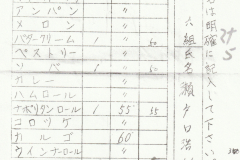 アンパン 〃
メロン 〃
バタークリーム 〃 1 50
ペストリー 〃
ソバ 〃 1 50
カレー 〃
ハムロール 〃
ナポリタンロール 1 55 55
コロッケ 〃
カルゴ 60
ウインナーロール 〃
名は明確に記入して下さい
六組氏名瀬戸口浩
24
5